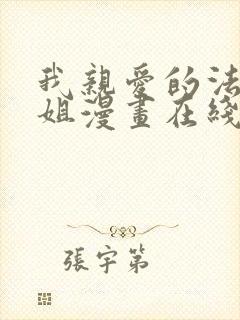 我親愛的法
姐漫畫在綫
張宇第